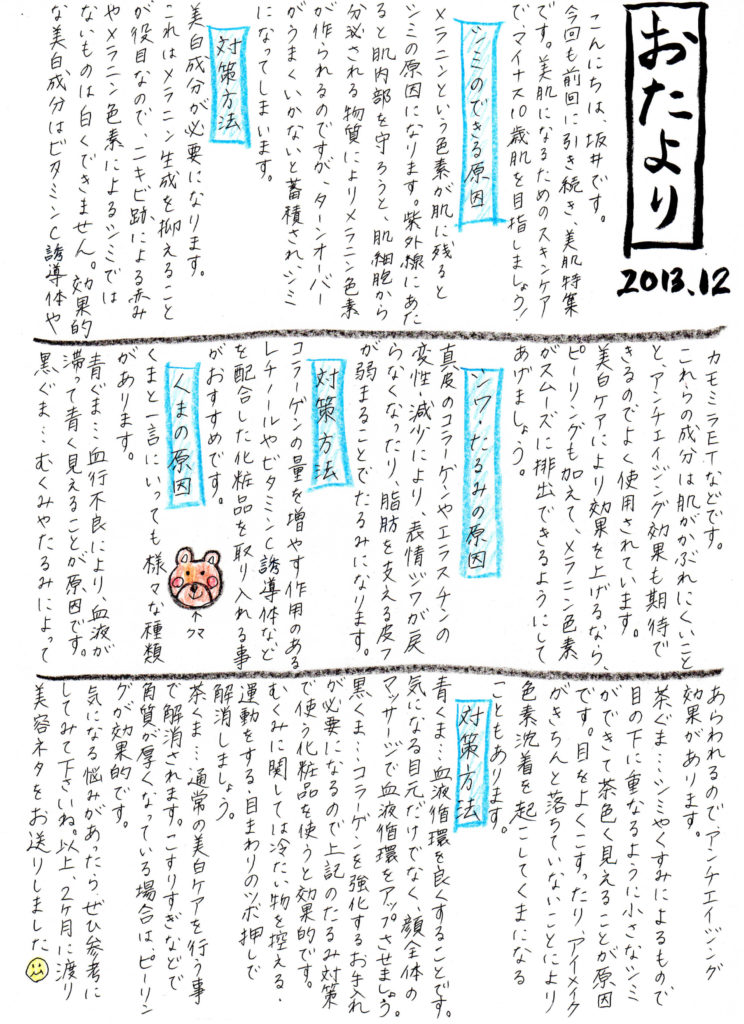 おたより
2013.12
こんにちは、坂井です。
今回も前回に引き続き、美肌特集
です。美肌になるためのスキンケア
で、マイナス10歳肌を目指しましょう!
シミのできる原因
メラニンという色素が肌に残ると
シミの原因になります。紫外線にあた
ると肌内部を守ろうと、肌細胞から
分泌される物質によりメラニン色素
が作られるのですが、ターンオーバー
がうまくいかないと蓄積され、シミ
になってしまいます。
対策方法
美白成分が必要になります。
これはメラニン生成を抑えること
が役目なので、ニキビ跡による赤み
やメラニン色素によるシミでは
ないものは白くできません。効果的
な美白成分はビタミンC誘導体や
カモミラETなどです。
これらの成分は肌がかぶれにくいこと
と、アンチエイジング効果も期待で
きるのでよく使用されています。
美白ケアにより効果を上げるなら、
ピーリングも加えて、メラニン色素
がスムーズに排出できるようにして
あげましょう。
シワ・たるみの原因
真皮のコラーゲンやエラスチンの
変性・減少により、表情ジワが戻
らなくなったり、脂肪を支える皮フ
が弱まることでたるみになります。
対策方法
コラーゲンの量を増やす作用のある
レチノールやビタミンC誘導体など
を配合した化粧品を取り入れる事
がおすすめです。
くまの原因
くまと一言にいっても様々な種類
があります。
青ぐま…血行不良により、血液が
滞って青く見えることが原因です。
黒ぐま…むくみやたるみによって
↑クマ
あらわれるのでアンチエイジング
効果があります。
茶ぐま…シミやくすみによるもので
目の下に重なるように小さなシミ
ができて茶色く見えることが原因
です。目をよくこすったり、アイメイク
がきちんと落ちていないことにより
色素沈着を起こしてくまになる
こともあります。
対策方法
青くま…血液循環を良くすることです。
気になる目元だけでなく、顔全体の
マッサージで血液循環をアップさせましょう。
黒くま…コラーゲンを強化するお手入れ
が必要になるので上記のたるみ対策
で使う化粧品を使うと効果的です。
むくみに関しては冷たい物を控える・
運動をする・目まわりのツボ押しで
解消しましょう。
茶くま…通常の美白ケアを行う事
で解消されます。こすりすぎなどで
角質が厚くなっている場合は、ピーリン
グが効果的です。
気になる悩みがあったらぜひ参考に
してみて下さいね。以上、2ヶ月に渡り
美容ネタをお送りしました